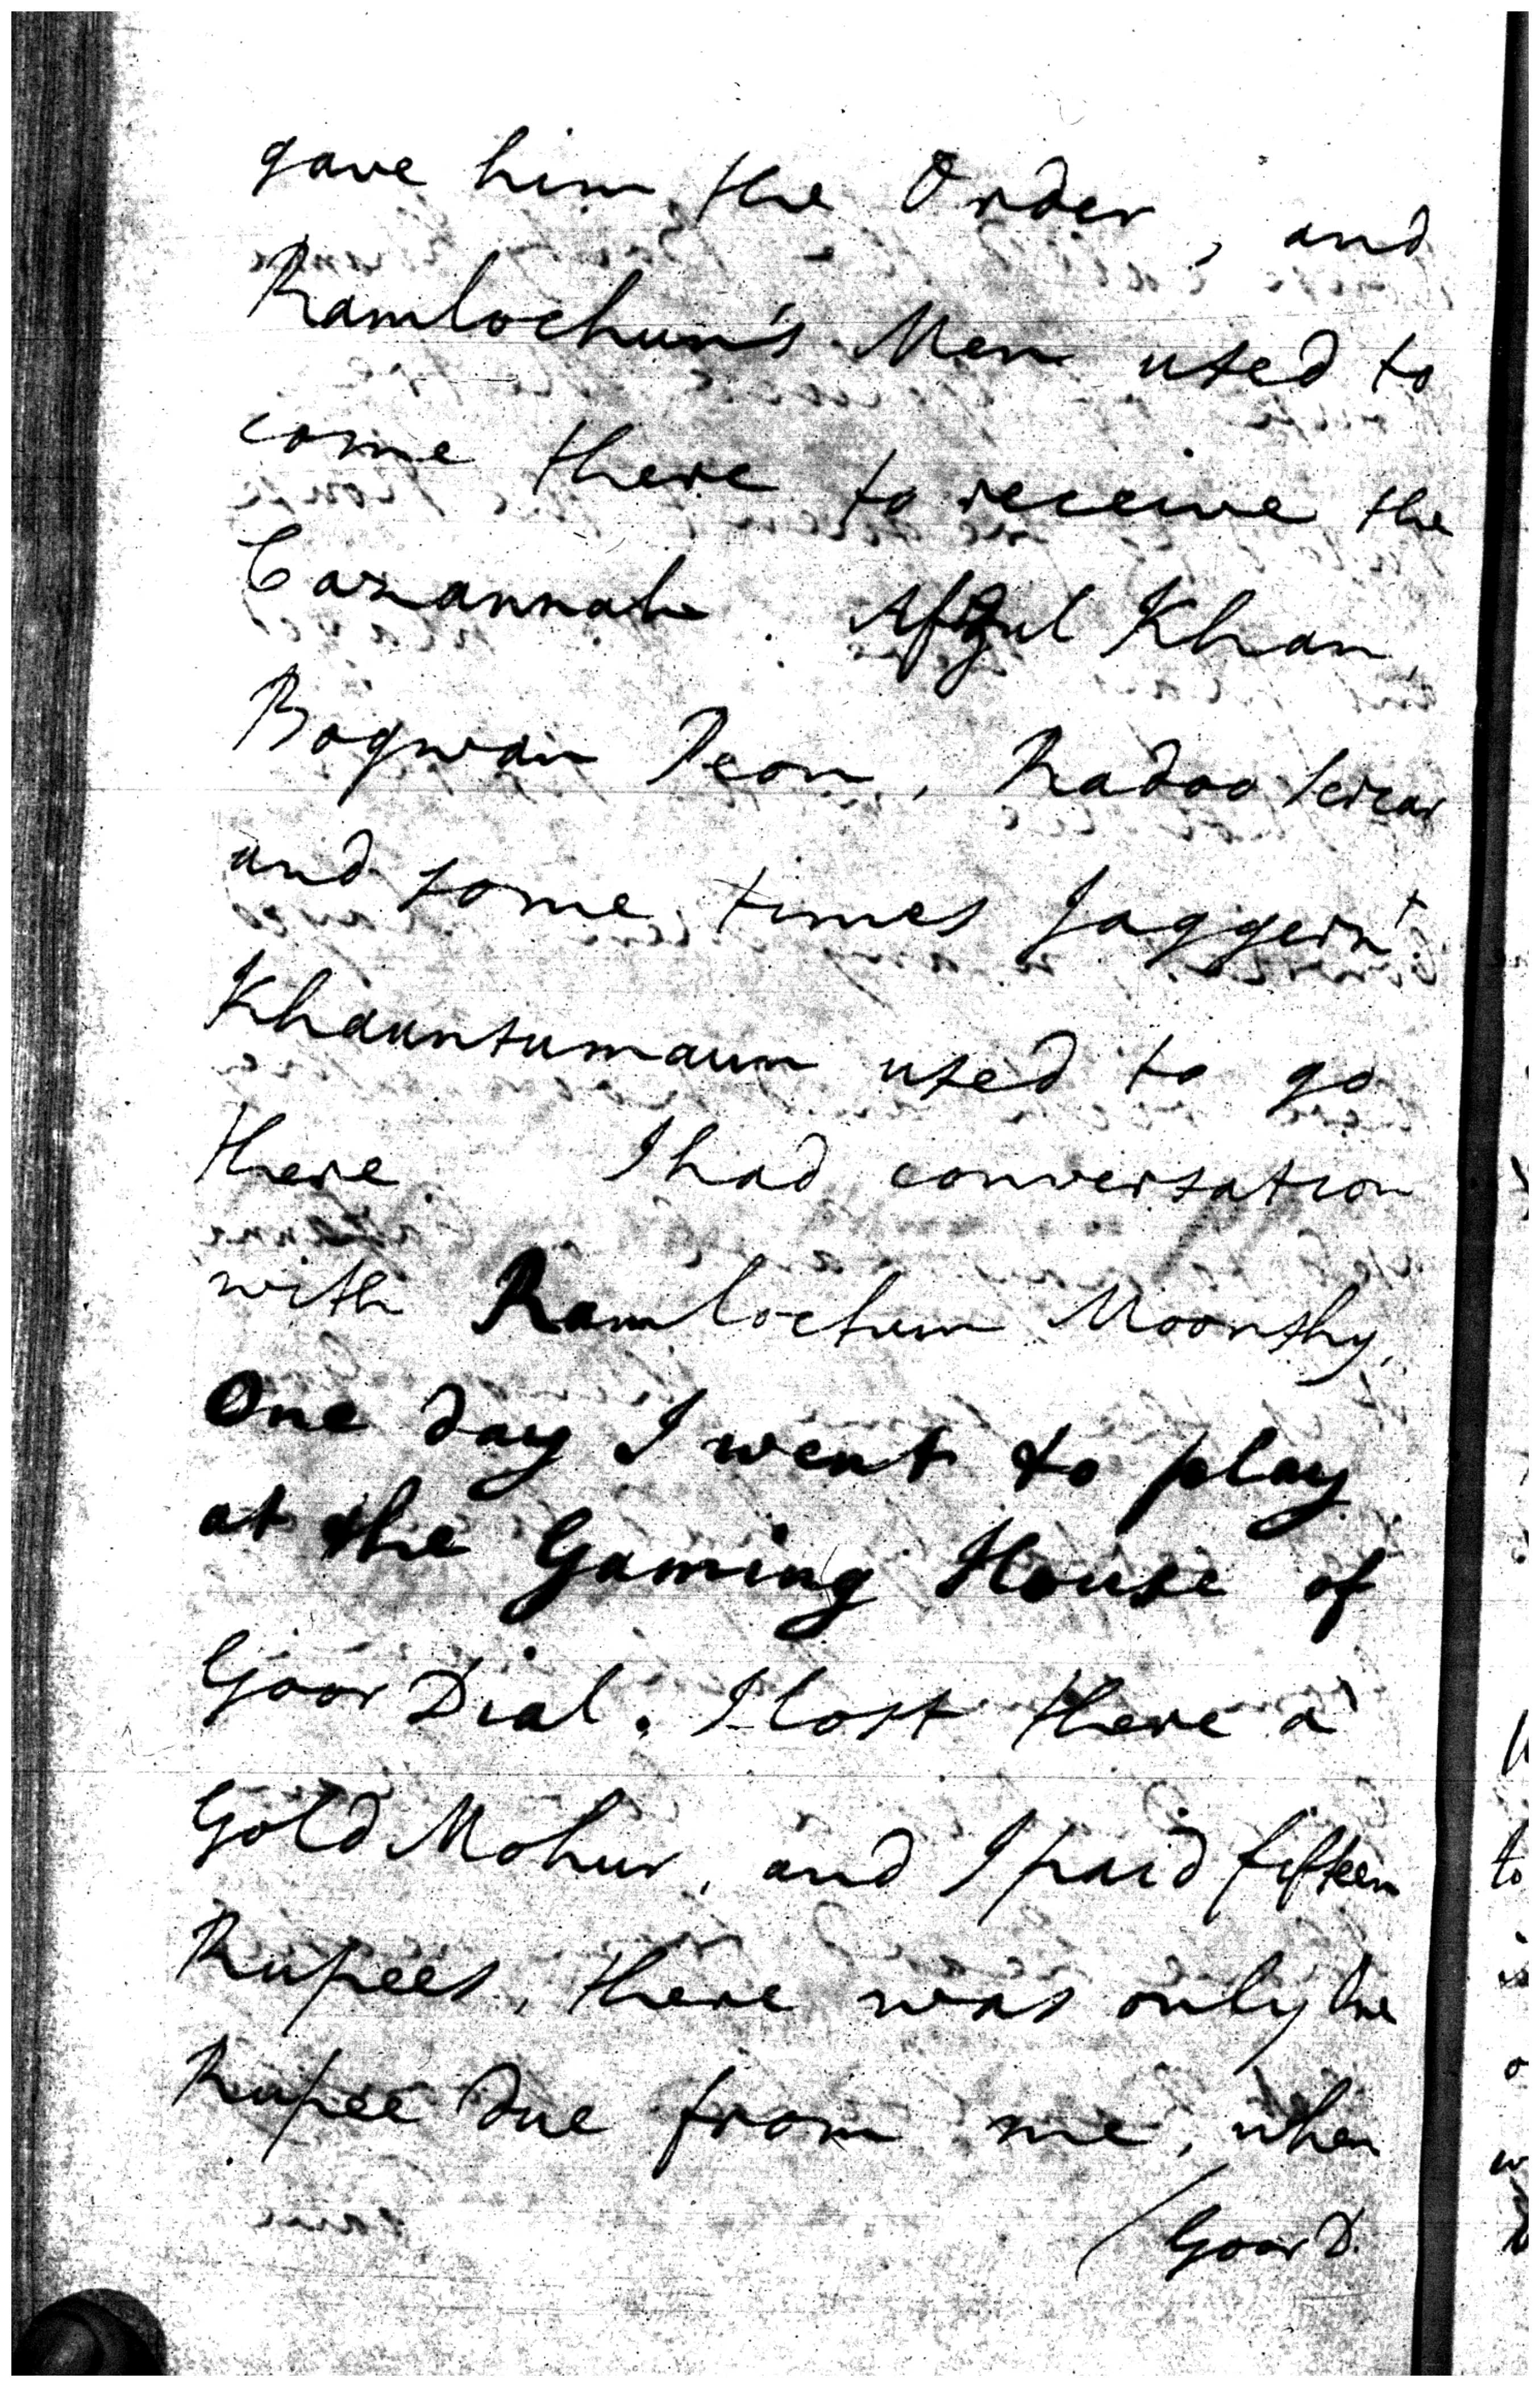 gave him the Order, and
Ramlochun's Men used to
come there to receive the
Cazannah. Afzul Khan,
Bogwan Peon, Radoo Sircar
and some times Jaggern't
Khaunsumaun used to go
there. I had conversation
with Ramlochun Moonshy,
One day I went to play
at the Gaming House of
Goor Dial. I lost there a
Gold Mohur, and I paid fifteen
Rupees, there was only One
Rupee due from me, when
/Goor D.